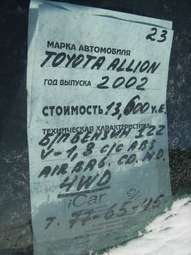 23
МАРКА АВТОМОБИЛЯ
TOYOTA ALLION
ГОД ВЫПУСКА 2002
СТОИМОСТЬ 13,600 у.е.
ТЕХНИЧЕСКАЯ ХАРАКТЕРИСТИКА
Б/П БЕНЗИН
V-1,8 C/C ABS
AIR BAG. CD. MD.
4WD
iCar
т. 77-65-45